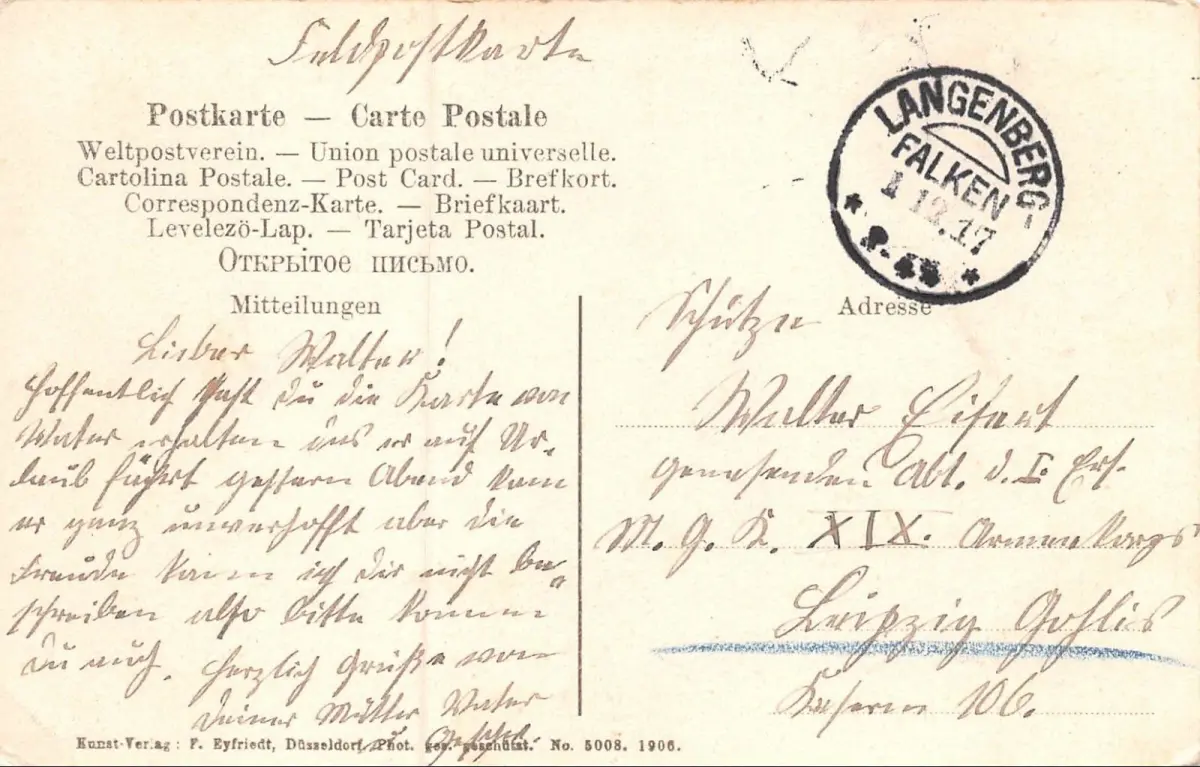 Feldpostkarte
Postkarte — Carte Postale
Weltpostverein. — Union postale universelle.
Cartolina Postale. — Post Card. — Brefkort.
Correspondenz-Karte. — Briefkaart.
Levelezö-Lap. — Tarjeta Postal.
Открытое письмо.
LANGENBERG-
FALKEN
1 12.17
Mitteilungen
Lieber Walter!
Hoffentlich hast du die Karte von
Vater erhalten das er auf Ur-
laub fährt gestern Abend kam
er ganz unverhofft aber die
Freude kann ich dir nicht be-
schreiben also bitte komm
du auch. Herzlich Grüße von
deiner Mutter Vater
Kunst-Verlag: F. Eyfriedt, Düsseldorf. Phot. ges. geschützt. No. 5008. 1906.
Adresse
Schütze
Walter Eifert
genesenden Abt. d. I. Ers.
M. G. K. XIX. Armeekorps
Leipzig Gohlis
Kasern 106.